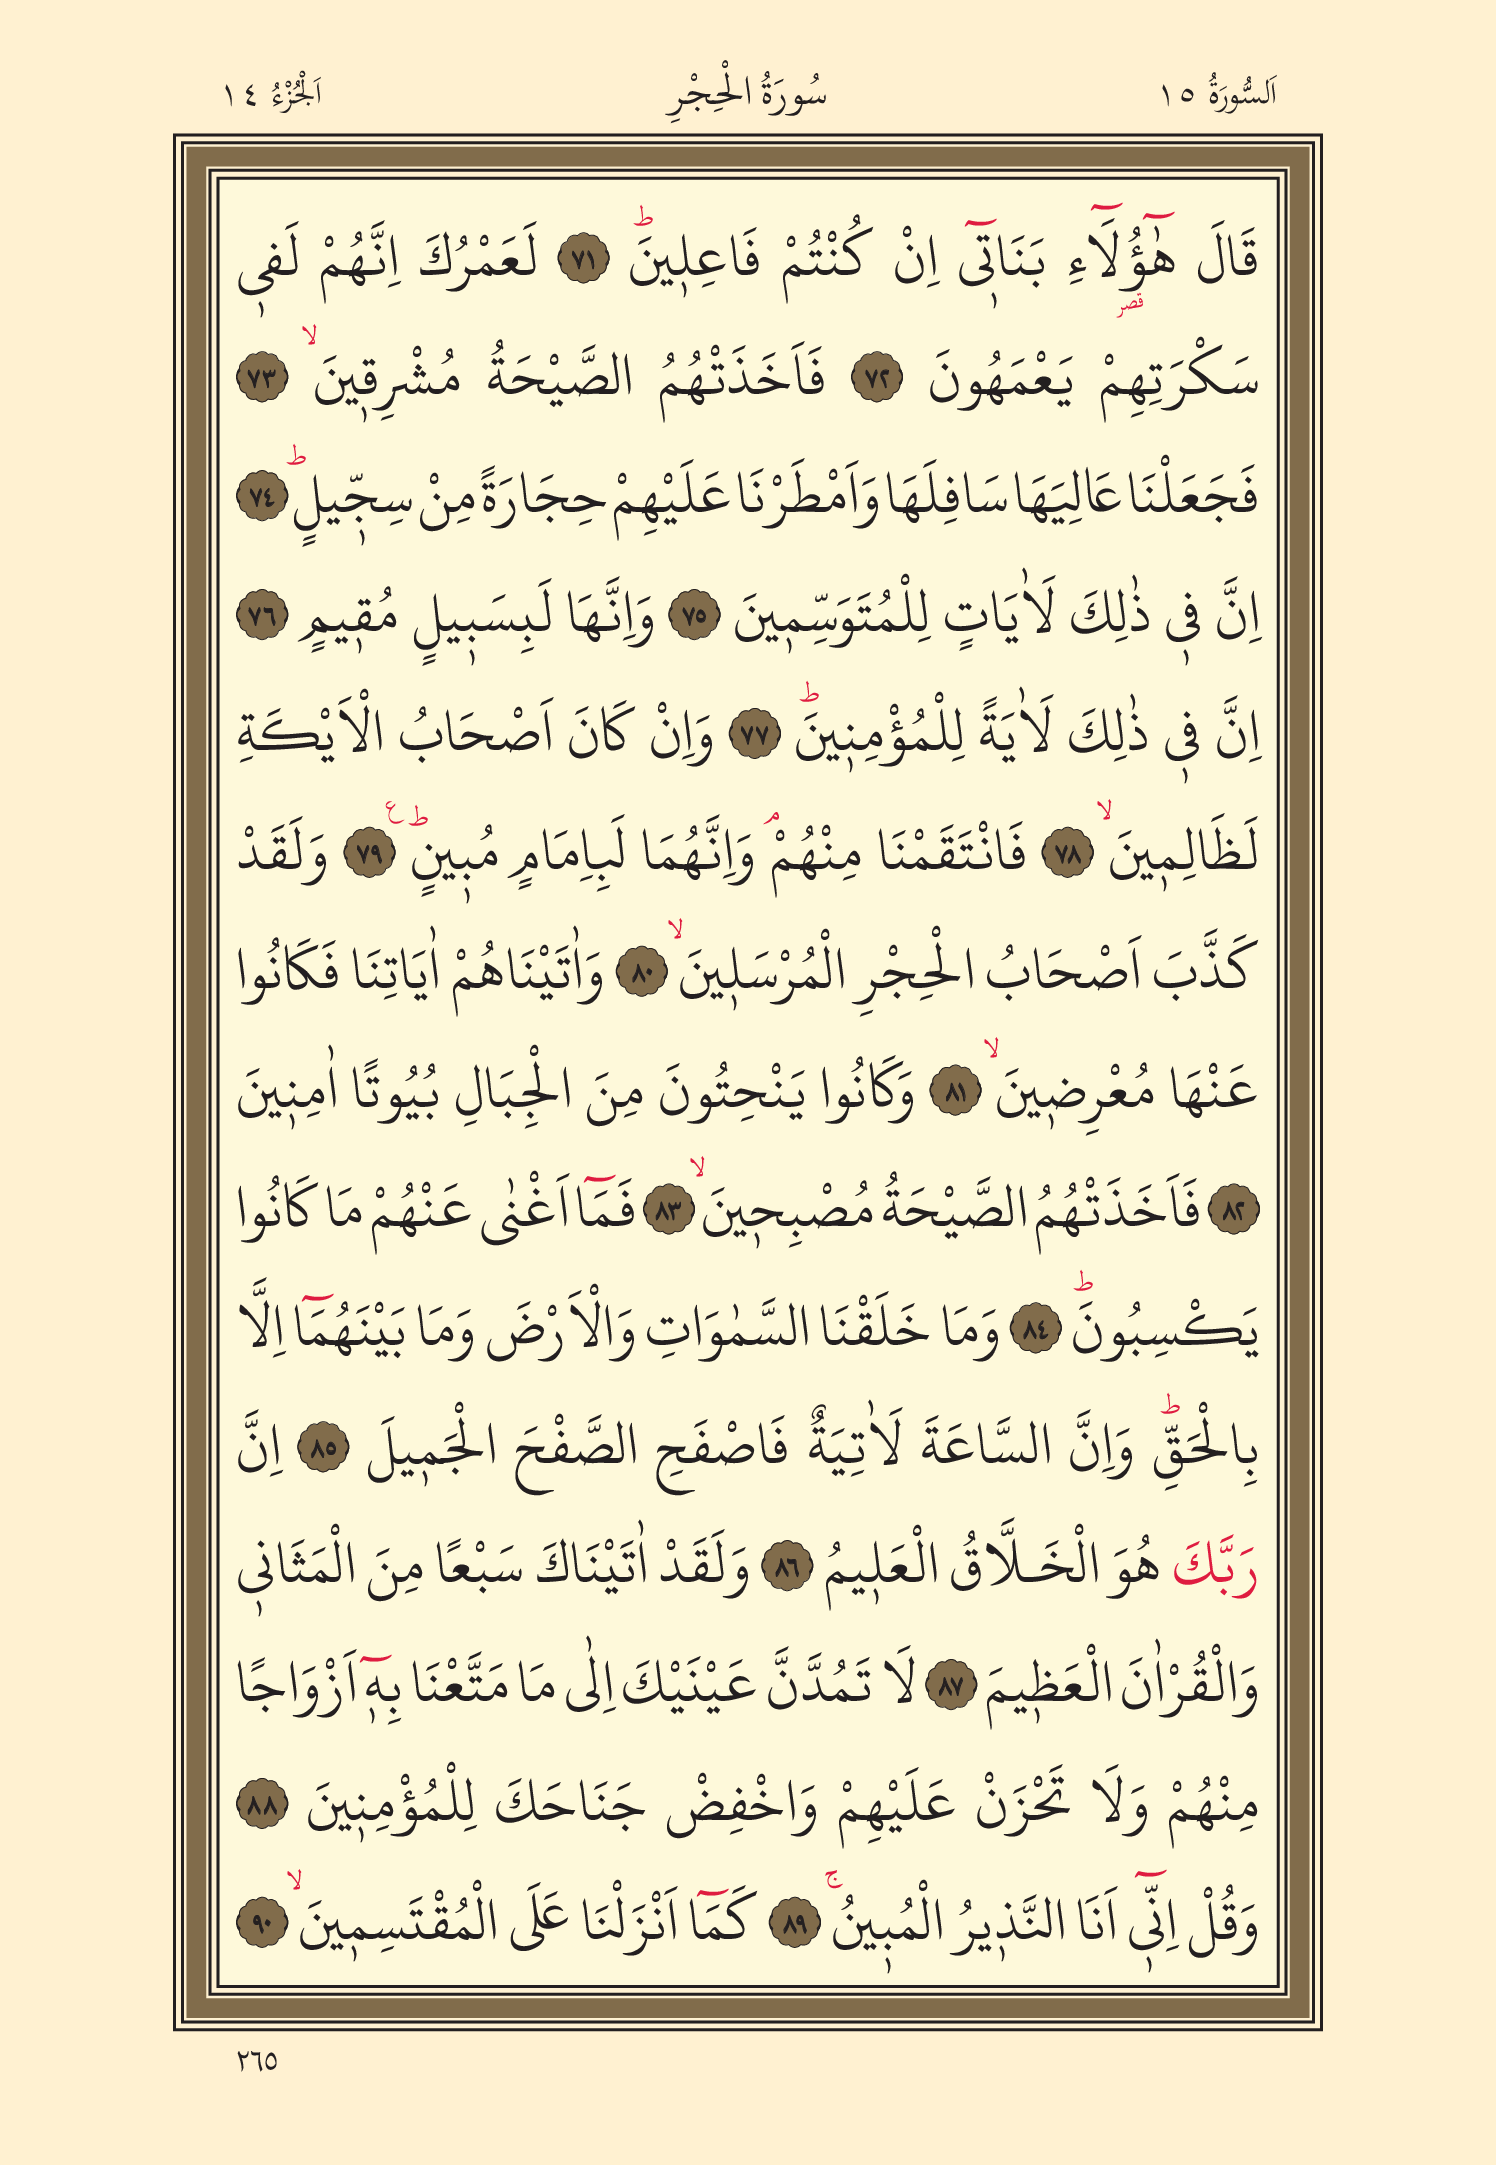 اَلسُّورَةُ ١٥ سُورَةُ الْحِجْرِ اَلْجُزْءُ ١٤
قَالَ هٰٓؤُ۬لَٓاءِ بَنَاتٖٓي اِنْ كُنْتُمْ فَاعِلٖينَؕ ﴿٧١﴾ لَعَمْرُكَ اِنَّهُمْ لَفٖي
قصر
سَكْرَتِهِمْ يَعْمَهُونَ ﴿٧٢﴾ فَاَخَذَتْهُمُ الصَّيْحَةُ مُشْرِقٖينَۙ ﴿٧٣﴾
فَجَعَلْنَا عَالِيَهَا سَافِلَهَا وَاَمْطَرْنَا عَلَيْهِمْ حِجَارَةً مِنْ سِجّٖيلٍؕ ﴿٧٤﴾
اِنَّ فٖي ذٰلِكَ لَاٰيَاتٍ لِلْمُتَوَسِّمٖينَ ﴿٧٥﴾ وَاِنَّهَا لَبِسَبٖيلٍ مُقٖيمٍ ﴿٧٦﴾
اِنَّ فٖي ذٰلِكَ لَاٰيَةً لِلْمُؤْمِنٖينَؕ ﴿٧٧﴾ وَاِنْ كَانَ اَصْحَابُ الْاَيْكَةِ
لَظَالِمٖينَۙ ﴿٧٨﴾ فَانْتَقَمْنَا مِنْهُمْۘ وَاِنَّهُمَا لَبِاِمَامٍ مُبٖينٍؕ ع ﴿٧٩﴾ وَلَقَدْ
كَذَّبَ اَصْحَابُ الْحِجْرِ الْمُرْسَلٖينَۙ ﴿٨٠﴾ وَاٰتَيْنَاهُمْ اٰيَاتِنَا فَكَانُوا
عَنْهَا مُعْرِضٖينَۙ ﴿٨١﴾ وَكَانُوا يَنْحِتُونَ مِنَ الْجِبَالِ بُيُوتًا اٰمِنٖينَ
﴿٨٢﴾ فَاَخَذَتْهُمُ الصَّيْحَةُ مُصْبِحٖينَۙ ﴿٨٣﴾ فَمَٓا اَغْنٰى عَنْهُمْ مَا كَانُوا
يَكْسِبُونَؕ ﴿٨٤﴾ وَمَا خَلَقْنَا السَّمٰوَاتِ وَالْاَرْضَ وَمَا بَيْنَهُمَٓا اِلَّا
بِالْحَقِّؕ وَاِنَّ السَّاعَةَ لَاٰتِيَةٌ فَاصْفَحِ الصَّفْحَ الْجَمٖيلَ ﴿٨٥﴾ اِنَّ
رَبَّكَ هُوَ الْخَلَّاقُ الْعَلٖيمُ ﴿٨٦﴾ وَلَقَدْ اٰتَيْنَاكَ سَبْعًا مِنَ الْمَثَانٖي
وَالْقُرْاٰنَ الْعَظٖيمَ ﴿٨٧﴾ لَا تَمُدَّنَّ عَيْنَيْكَ اِلٰى مَا مَتَّعْنَا بِهٖٓ اَزْوَاجًا
مِنْهُمْ وَلَا تَحْزَنْ عَلَيْهِمْ وَاخْفِضْ جَنَاحَكَ لِلْمُؤْمِنٖينَ ﴿٨٨﴾
وَقُلْ اِنّٖٓي اَنَا النَّذٖيرُ الْمُبٖينُۚ ﴿٨٩﴾ كَمَٓا اَنْزَلْنَا عَلَى الْمُقْتَسِمٖينَۙ ﴿٩٠﴾
٢٦٥